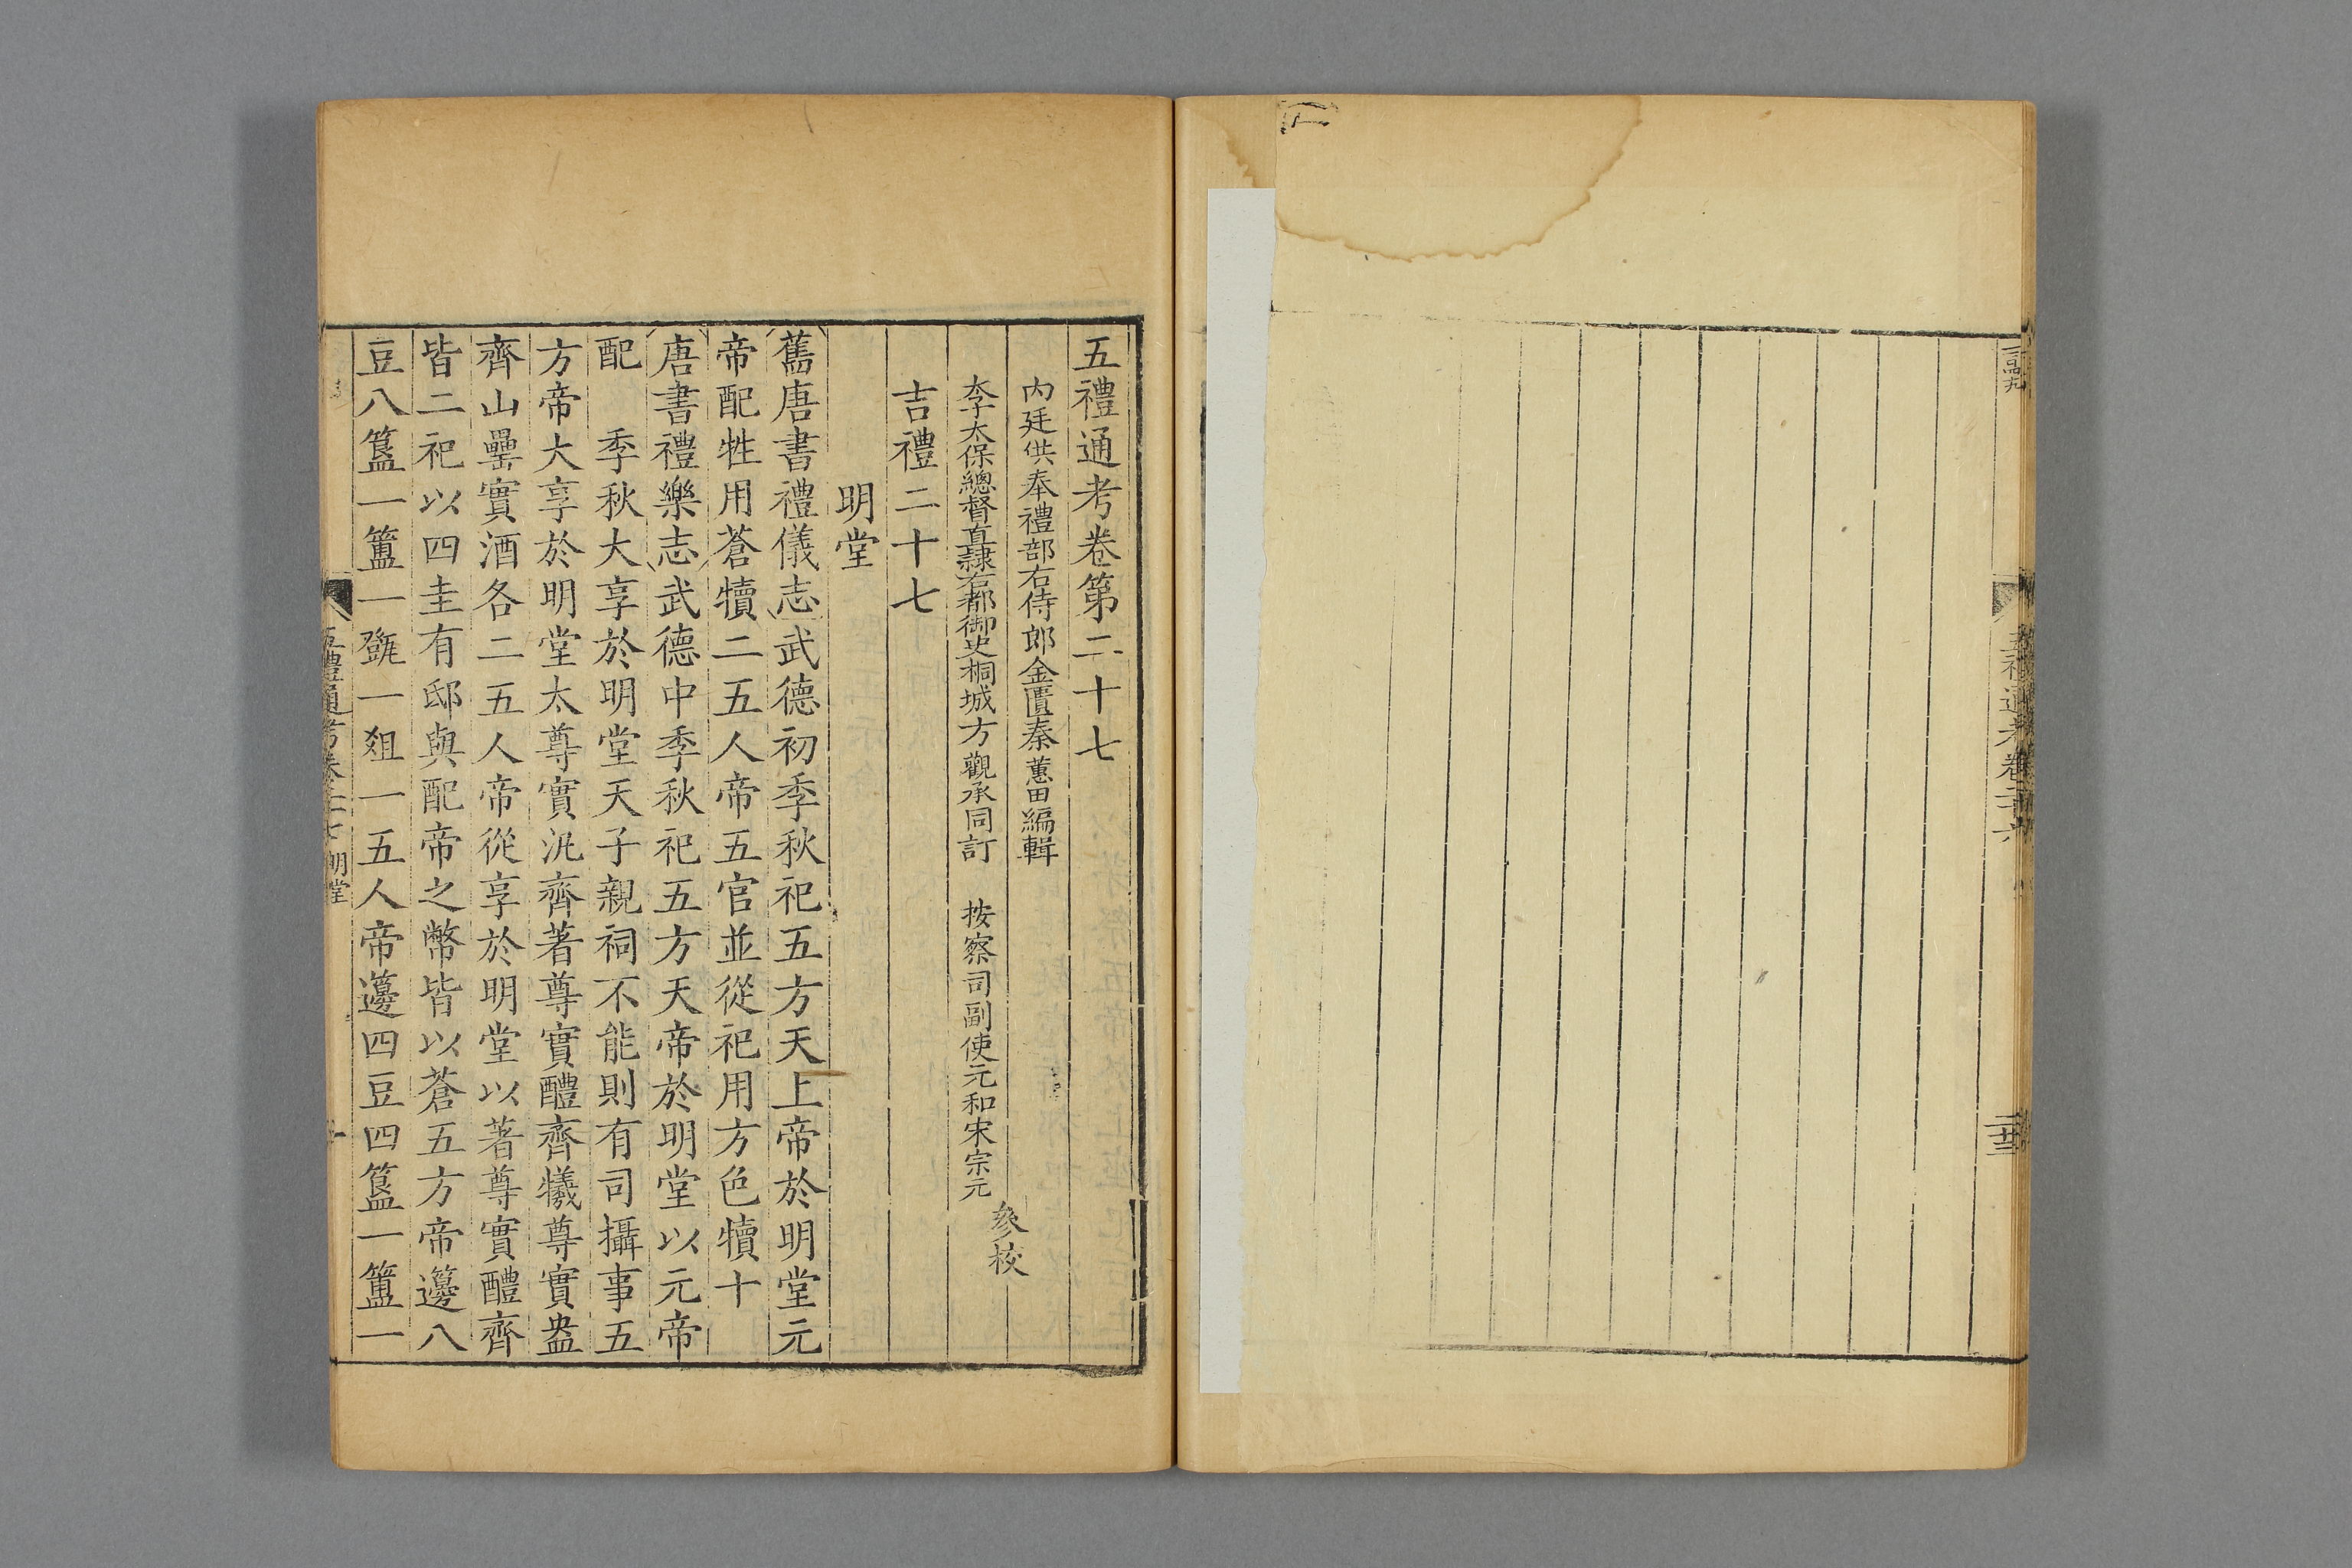 五禮通考卷二十六
二十三
五禮通考卷第二十七
內廷供奉禮部右侍郎金匱秦蕙田編輯
太子太保總督直隸右都御史桐城方觀承同訂　按察司副使元和宋宗元
參校
吉禮二十七
明堂
舊唐書禮儀志武德初季秋祀五方天上帝於明堂元
帝配牲用蒼犢二五人帝五官並從祀用方色犢十
唐書禮樂志武德中季秋祀五方天帝於明堂以元帝
配　季秋大享於明堂天子親祠不能則有司攝事五
方帝大享於明堂太尊實汎齊著尊實醴齊犧尊實盎
齊山罍實酒各二五人帝從享於明堂以著尊實醴齊
皆二祀以四圭有邸與配帝之幣皆以蒼五方帝籩八
豆八簋一簠一㽅一俎一五人帝籩四豆四簋一簠一
五禮通考卷二十七 明堂
一